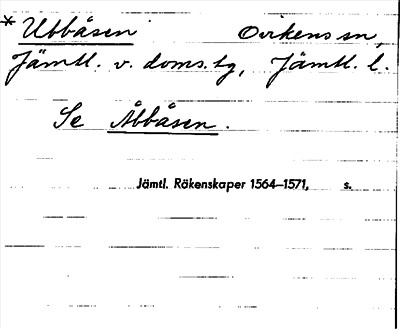 * Ubbåsen Ovikens sn,
Jämtl. v. doms.tg, Jämtl. l.
Se Åbbåsen.
Jämtl. Räkenskaper 1564–1571, s.